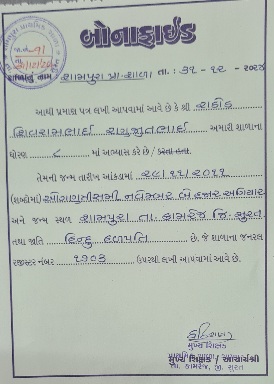 બોનાફાઈડ
જા.નં. ૧૧
શાળાનું નામ શામપુરા પ્રા. શાળા તા. : ૩૧ - ૧૨ - ૨૦૨૪
આથી પ્રમાણ પત્ર લખી આપવામાં આવે છે કે શ્રી રાઠોડ
શિવરામભાઈ અમારી શાળાના
ધોરણ ૮ માં અભ્યાસ કરે છે / કરતા હતા.
તેમની જન્મ તારીખ આંકડામાં ૨૯/૧૧/૨૦૧૧
(શબ્દોમાં) ઓગણત્રીસમી નવેમ્બર બે હજાર અગિયાર
અને જન્મ સ્થળ શામપુરા તા. કામરેજ જિ. સુરત
તથા જાતિ હિન્દુ હળપતિ છે. જે શાળાના જનરલ
રજીસ્ટર નંબર ૧૭૦૩ ઉપરથી લખી આપવામાં આવે છે.
મુખ્ય શિક્ષક
મુખ્ય શિક્ષક / આચાર્યશ્રી
તા. કામરેજ, જી. સુરત